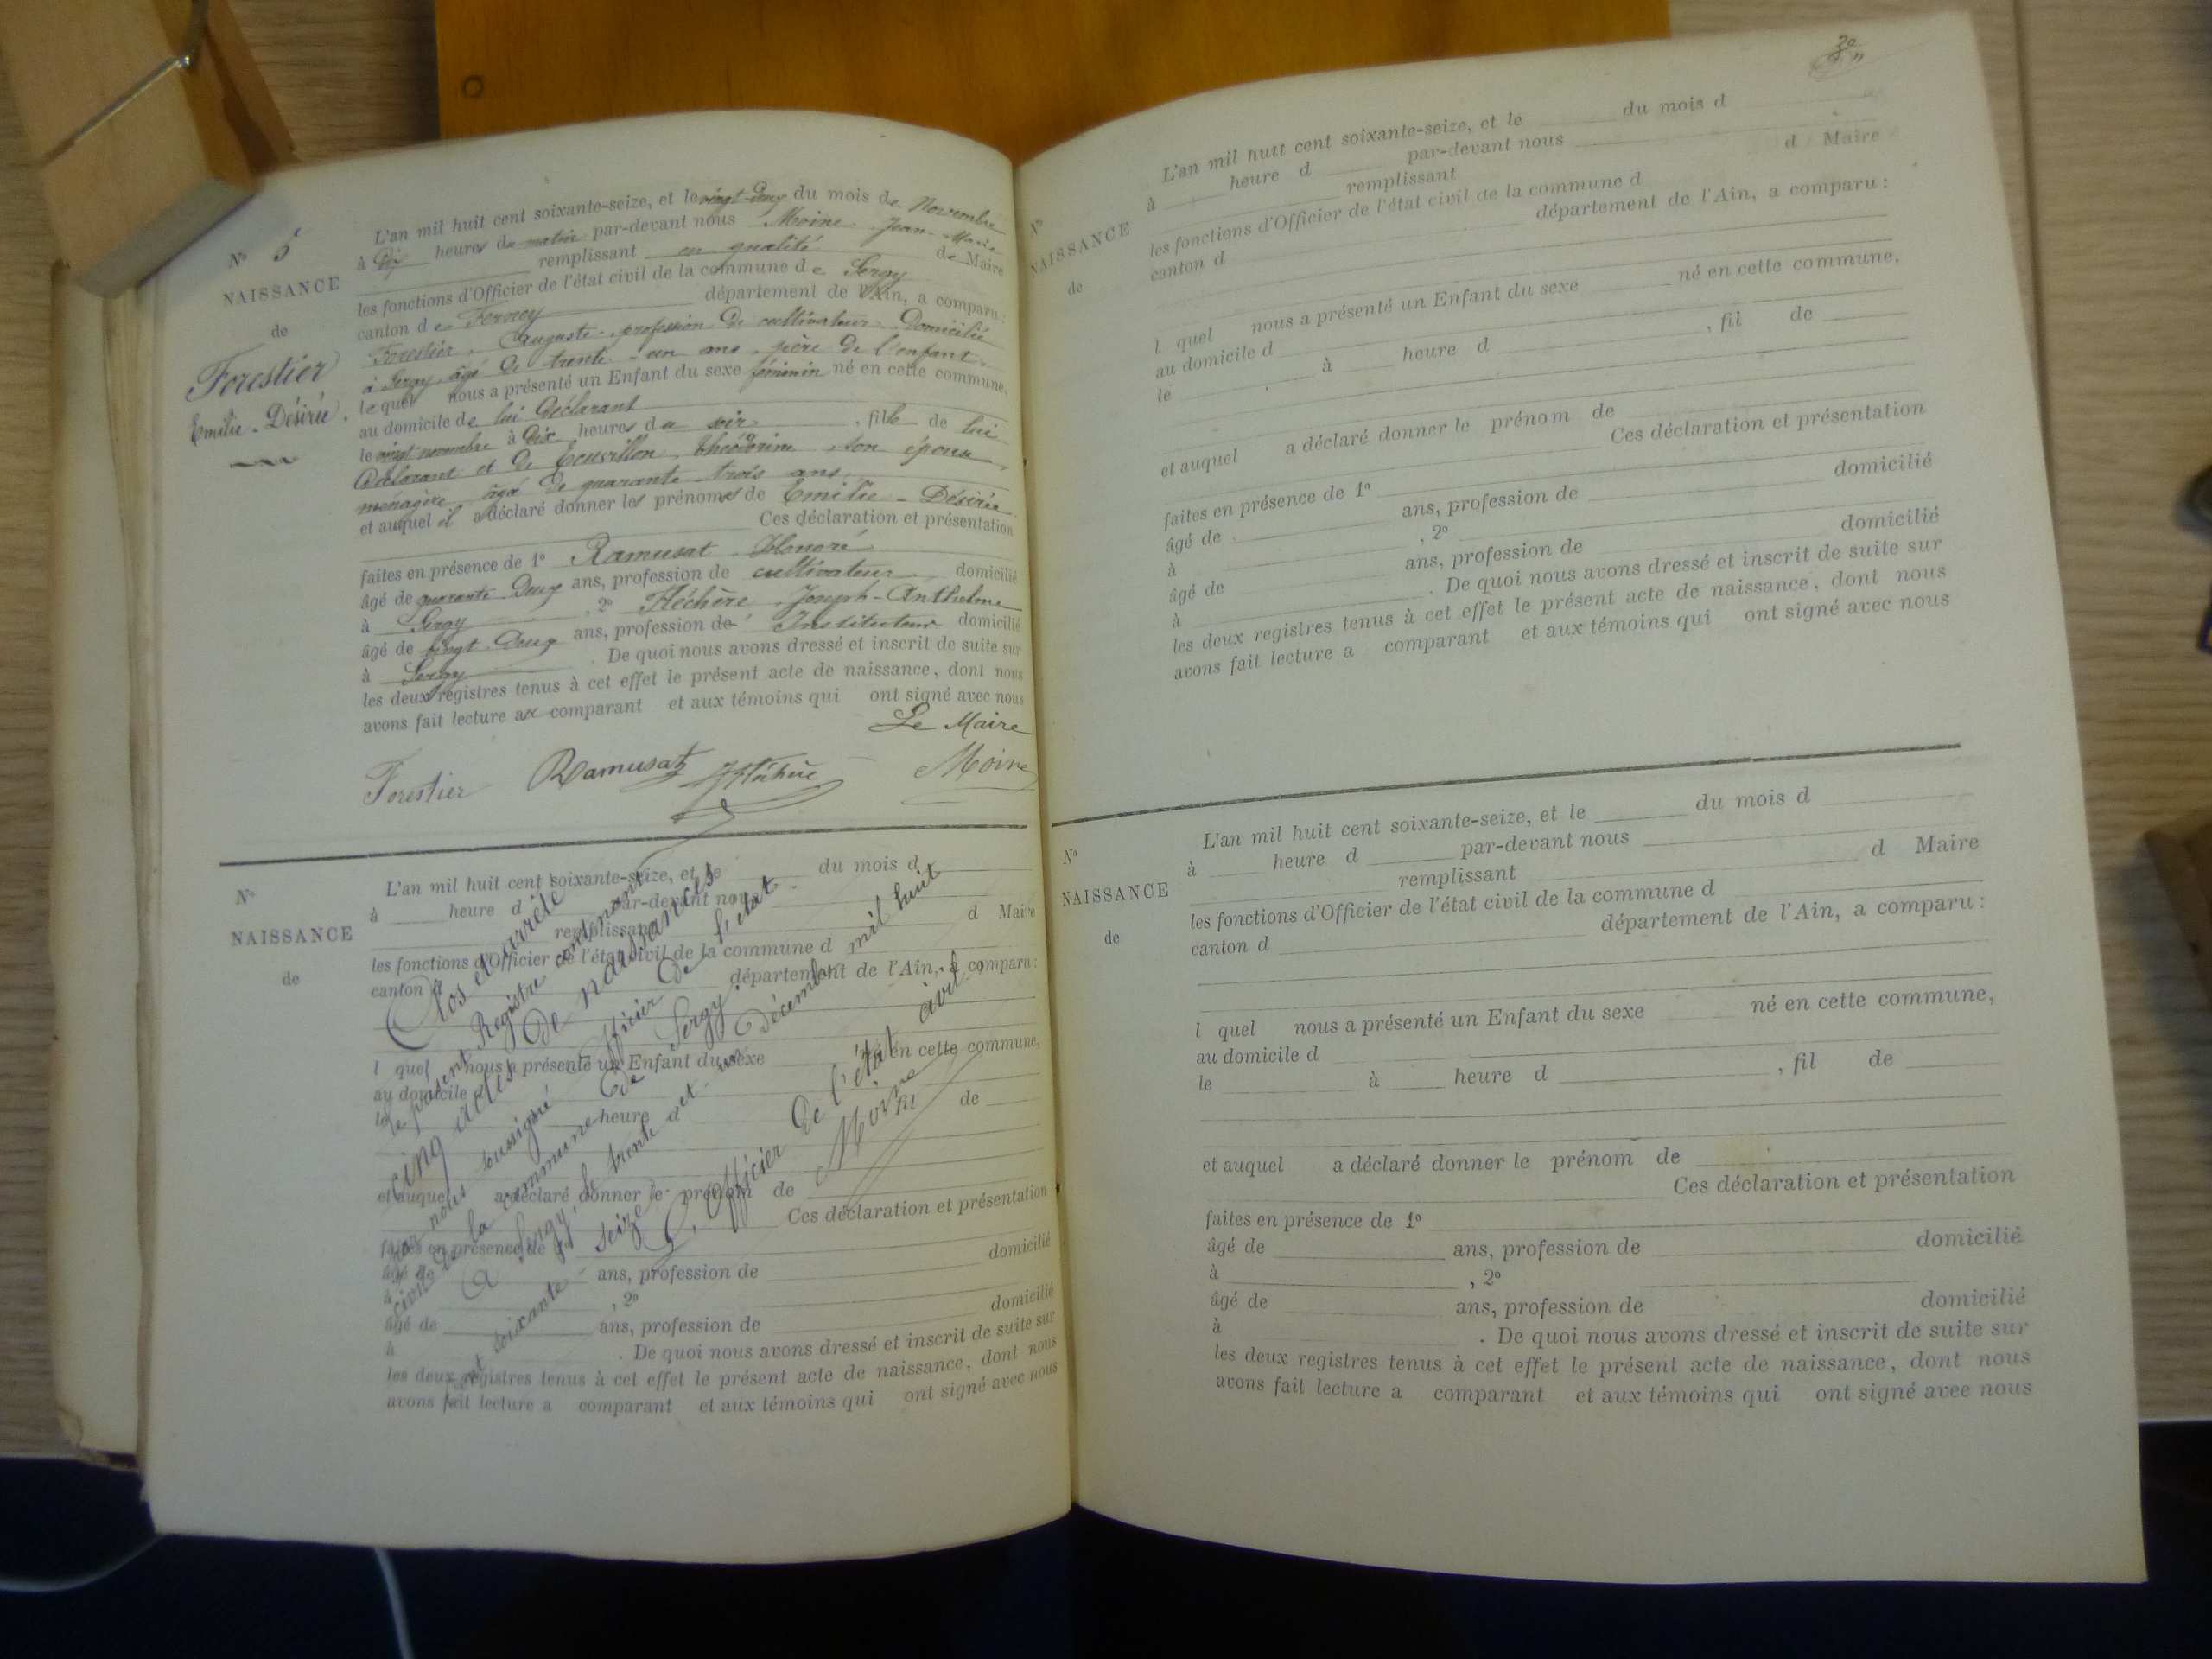 N° 5
NAISSANCE
de
Forestier
Emilie-Désirée.
L'an mil huit cent soixante-seize, et le vingt-deux du mois de Novembre
à dix heures du matin par-devant nous Moine Jean-Marie
remplissant en qualité de Maire
les fonctions d'Officier de l'état civil de la commune de Sergy
canton de Ferney département de l'Ain, a comparu :
Forestier, Auguste, profession de cultivateur Domicilié
à Sergy, âgé de trente-un ans, père de l'enfant
lequel nous a présenté un Enfant du sexe féminin né en cette commune,
au domicile de lui déclarant
le vingt novembre à dix heures du soir, fille de lui
Déclarant et de Théodorine, son épouse,
ménagère, âgé de quarante-trois ans,
et auquel il a déclaré donner les prénoms de Emilie-Désirée
Ces déclaration et présentation
faites en présence de 1° Ramusat Honoré
âgé de quarante-deux ans, profession de cultivateur domicilié
à Sergy, 2° Fléchère, Joseph-Anthelme
âgé de vingt-deux ans, profession de Instituteur domicilié
à Sergy. De quoi nous avons dressé et inscrit de suite sur
les deux registres tenus à cet effet le présent acte de naissance, dont nous
avons fait lecture au comparant et aux témoins qui ont signé avec nous
Le Maire
Forestier Ramusat Fléchère Moine
N°
NAISSANCE
de
L'an mil huit cent soixante-seize, et le du mois d
à heure d par-devant nous
remplissant d Maire
les fonctions d'Officier de l'état civil de la commune d
canton d département de l'Ain, a comparu :
l quel nous a présenté un Enfant du sexe né en cette commune,
au domicile d
le à heure d , fil de
et auquel a déclaré donner le prénom de
Ces déclaration et présentation
faites en présence de 1°
âgé de ans, profession de domicilié
à , 2°
âgé de ans, profession de domicilié
à . De quoi nous avons dressé et inscrit de suite sur
les deux registres tenus à cet effet le présent acte de naissance, dont nous
avons fait lecture a comparant et aux témoins qui ont signé avec nous
Clos et arrêté
le présent Registre contenant
cinq actes De naissances
par nous soussigné Officier De l'état
civil de la commune De Sergy.
A Sergy, le trente et un Décembre mil huit
cent soixante seize
L'officier De l'état civil,
Moine
N°
NAISSANCE
de
L'an mil huit cent soixante-seize, et le du mois d
à heure d par-devant nous
remplissant d Maire
les fonctions d'Officier de l'état civil de la commune d
canton d département de l'Ain, a comparu :
l quel nous a présenté un Enfant du sexe né en cette commune,
au domicile d
le à heure d , fil de
et auquel a déclaré donner le prénom de
Ces déclaration et présentation
faites en présence de 1°
âgé de ans, profession de domicilié
à , 2°
âgé de ans, profession de domicilié
à . De quoi nous avons dressé et inscrit de suite sur
les deux registres tenus à cet effet le présent acte de naissance, dont nous
avons fait lecture a comparant et aux témoins qui ont signé avec nous
N°
NAISSANCE
de
L'an mil huit cent soixante-seize, et le du mois d
à heure d par-devant nous
remplissant d Maire
les fonctions d'Officier de l'état civil de la commune d
canton d département de l'Ain, a comparu :
l quel nous a présenté un Enfant du sexe né en cette commune,
au domicile d
le à heure d , fil de
et auquel a déclaré donner le prénom de
Ces déclaration et présentation
faites en présence de 1°
âgé de ans, profession de domicilié
à , 2°
âgé de ans, profession de domicilié
à . De quoi nous avons dressé et inscrit de suite sur
les deux registres tenus à cet effet le présent acte de naissance, dont nous
avons fait lecture a comparant et aux témoins qui ont signé avec nous